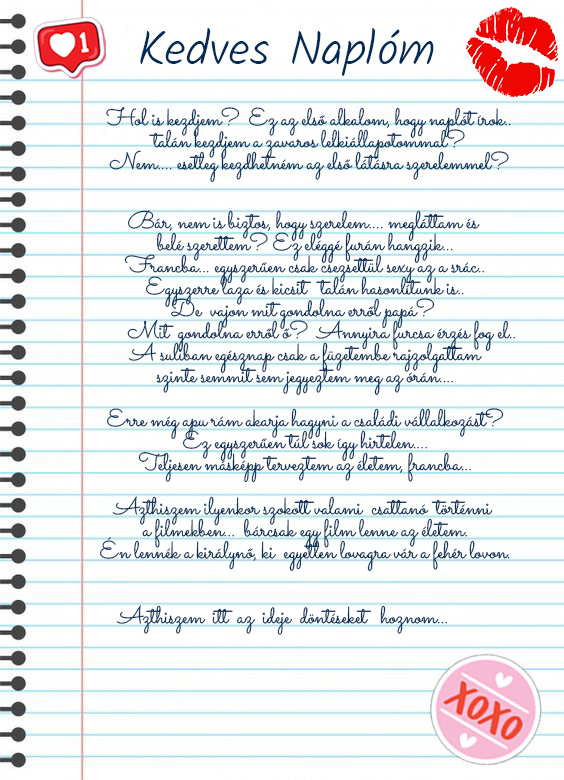 1
Kedves Naplóm
Hol is kezdjem? Ez az első alkalom, hogy naplót írok..
talán kezdjem a zavaros lelkiállapotommal?
Nem.... esetleg kezdhetném az első látásra szerelemmel?
Bár, nem is biztos, hogy szerelem.... megláttam és
belé szerettem? Ez eléggé furán hangzik...
Francba... egyszerűen csak cseszettül sexy az a srác..
Egyszerre laza és kicsit talán hasonlítunk is..
De vajon mit gondolna erről papá?
Mit gondolna erről ő? Annyira furcsa érzés fog el..
A suliban egésznap csak a füzetembe rajzolgattam
szinte semmit sem jegyeztem meg az órán....
Erre még apu rám akarja hagyni a családi vállalkozást?
Ez egyszerűen túl sok így hirtelen....
Teljesen másképp terveztem az életem, francba...
Azthiszem ilyenkor szokott valami csattanó történni
a filmekben... bárcsak egy film lenne az életem.
Én lennék a királynő, ki egyetlen lovagra vár a fehér lovon.
Azthiszem itt az ideje döntéseket hoznom...
XOXO